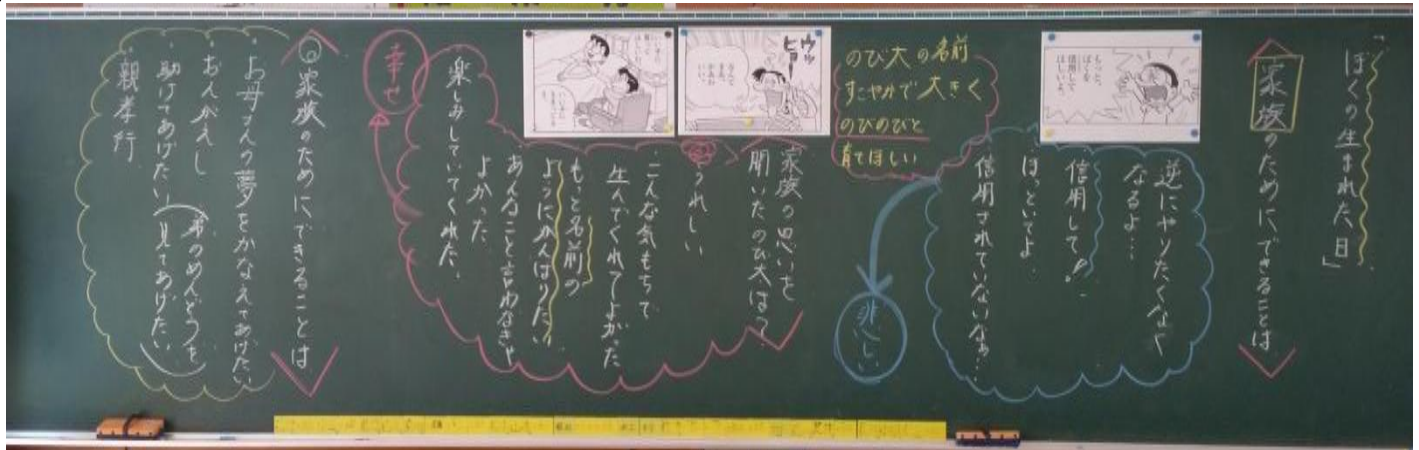 「ぼくの生まれた日」
家族のためにできることは
もっと、
ぼくを
信用して
ほしいよ。
逆にやりたくなく
なるよ…
信用して!
ほっといてよ
信用されていないなぁ…
悲しい
のび太の名前
すこやかで大きく
のびのびと
育てほしい
ウッ
ヒョー
家族の思いを
聞いたのび太は?
うれしい
こんな気もちで
生んでくれてよかった
もっと名前の
ようにがんばりたい
あんなこと言わなきゃ
よかった
楽しみしていてくれた、
幸せ
◎家族のためにできることは
・お母さんの夢をかなえてあげたい
・おんがえし
・助けてあげたい
弟のめんどうを
見てあげたい
・親孝行